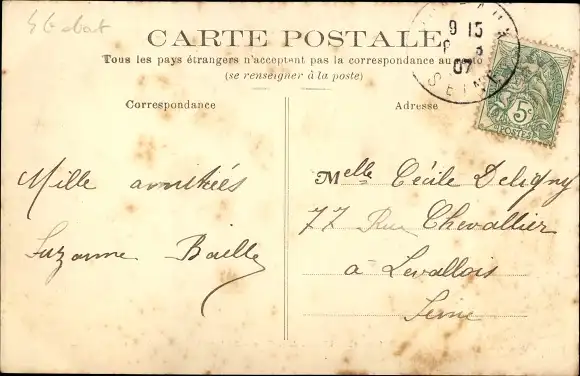 CARTE POSTALE
Tous les pays étrangers n'acceptent pas la correspondance au
(se renseigner à la poste)
Correspondance
Adresse
9 15
07
SEINE
5c
POSTES
Mille amitiés
Suzanne Baille
Melle Cécile Deligny
77 Rue Chevallier
a Levallois
Seine